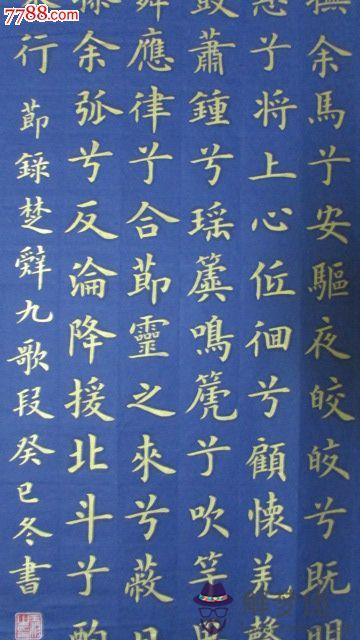 7788.com
撫余馬兮安驅夜皎皎兮既明
息兮将上心低佪兮顧懷羌聲
鼓蕭鍾兮瑶簴鳴篪兮吹竽
舞應律兮合節靈之來兮蔽日
操余弧兮反淪降援北斗兮酌
行
節録楚辭九歌段癸巳冬書